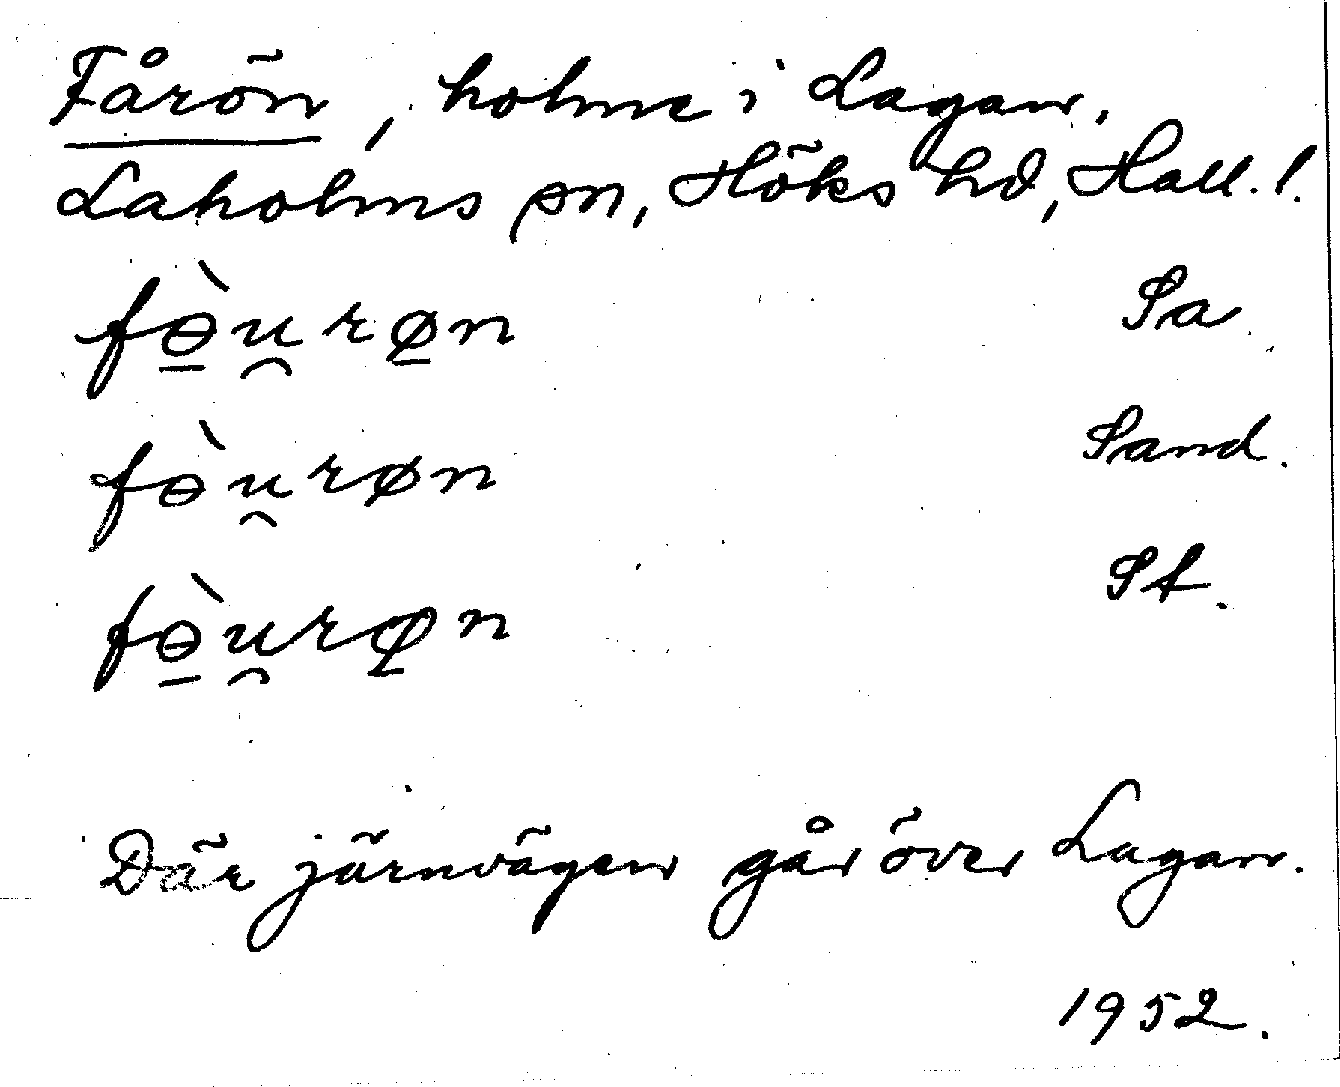 Fårön, holme i Lagan.
Laholms sn, Höks hd, Hall. l.
fɵ̠̀u̯rø̠n Sa.
fɵ̀u̯røn Sand.
fɵ̠̀u̯rø̠n St.
Där järnvägen går över Lagan.
1952.